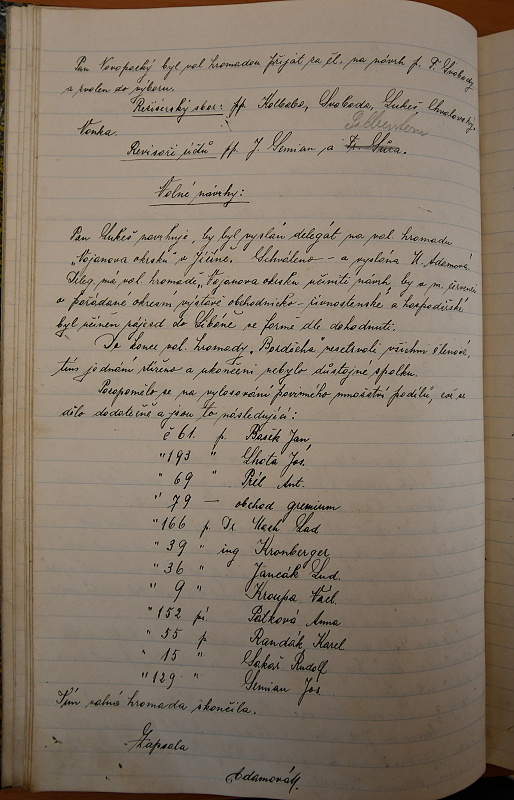 Pan Novopacký byl val. hromadou přijat za čl. na návrh p. F. Svobody
a zvolen do výboru.
Režisérský sbor: pp. Kolbaba, Svoboda, Lukeš-Chvalovský,
Vonka.
Revisoři účtů pp. J. Semian a Fr. Gůra.
Volné návrhy:
Pan Lukeš navrhuje, by byl vyslán delegát na val. hromadu
"Vojanova okrsku" v Jičíně. Schváleno - a vyslána M. Adamová.
Deleg. má val. hromadě "Vojanova okrsku učiniti návrh, by v m. červenci
v pořádané okresní výstavě obchodnicko-živnostenské a hospodářské
byl učiněn zájezd do Libáně ve formě dle dohodnutí.
Do konce val. hromady "Bozděcha" nesetrvali všichni členové,
tím jednání ztíženo a ukončení nebylo důstojné spolku.
Zapomělo se na vylosování povinného množství podílů, což se
dělo dodatečně a jsou to následující:
č 61. p. Bašek Jan
" 193 " Lhota Jos.
" 69 " Prél Ant.
" 79 — obchod. gremium
" 166 p. Dr. Mach Lad
" 39 " ing Kronberger
" 36 " Jančák Lud.
" 9 " Kroupa Václ.
" 152 pí Pátková Anna
" 55 p. Randák Karel
" 15 " Sakař Rudolf
" 129 " Semian Jos.
Tím valná hromada skončila.
Zapsala
Adamová M.